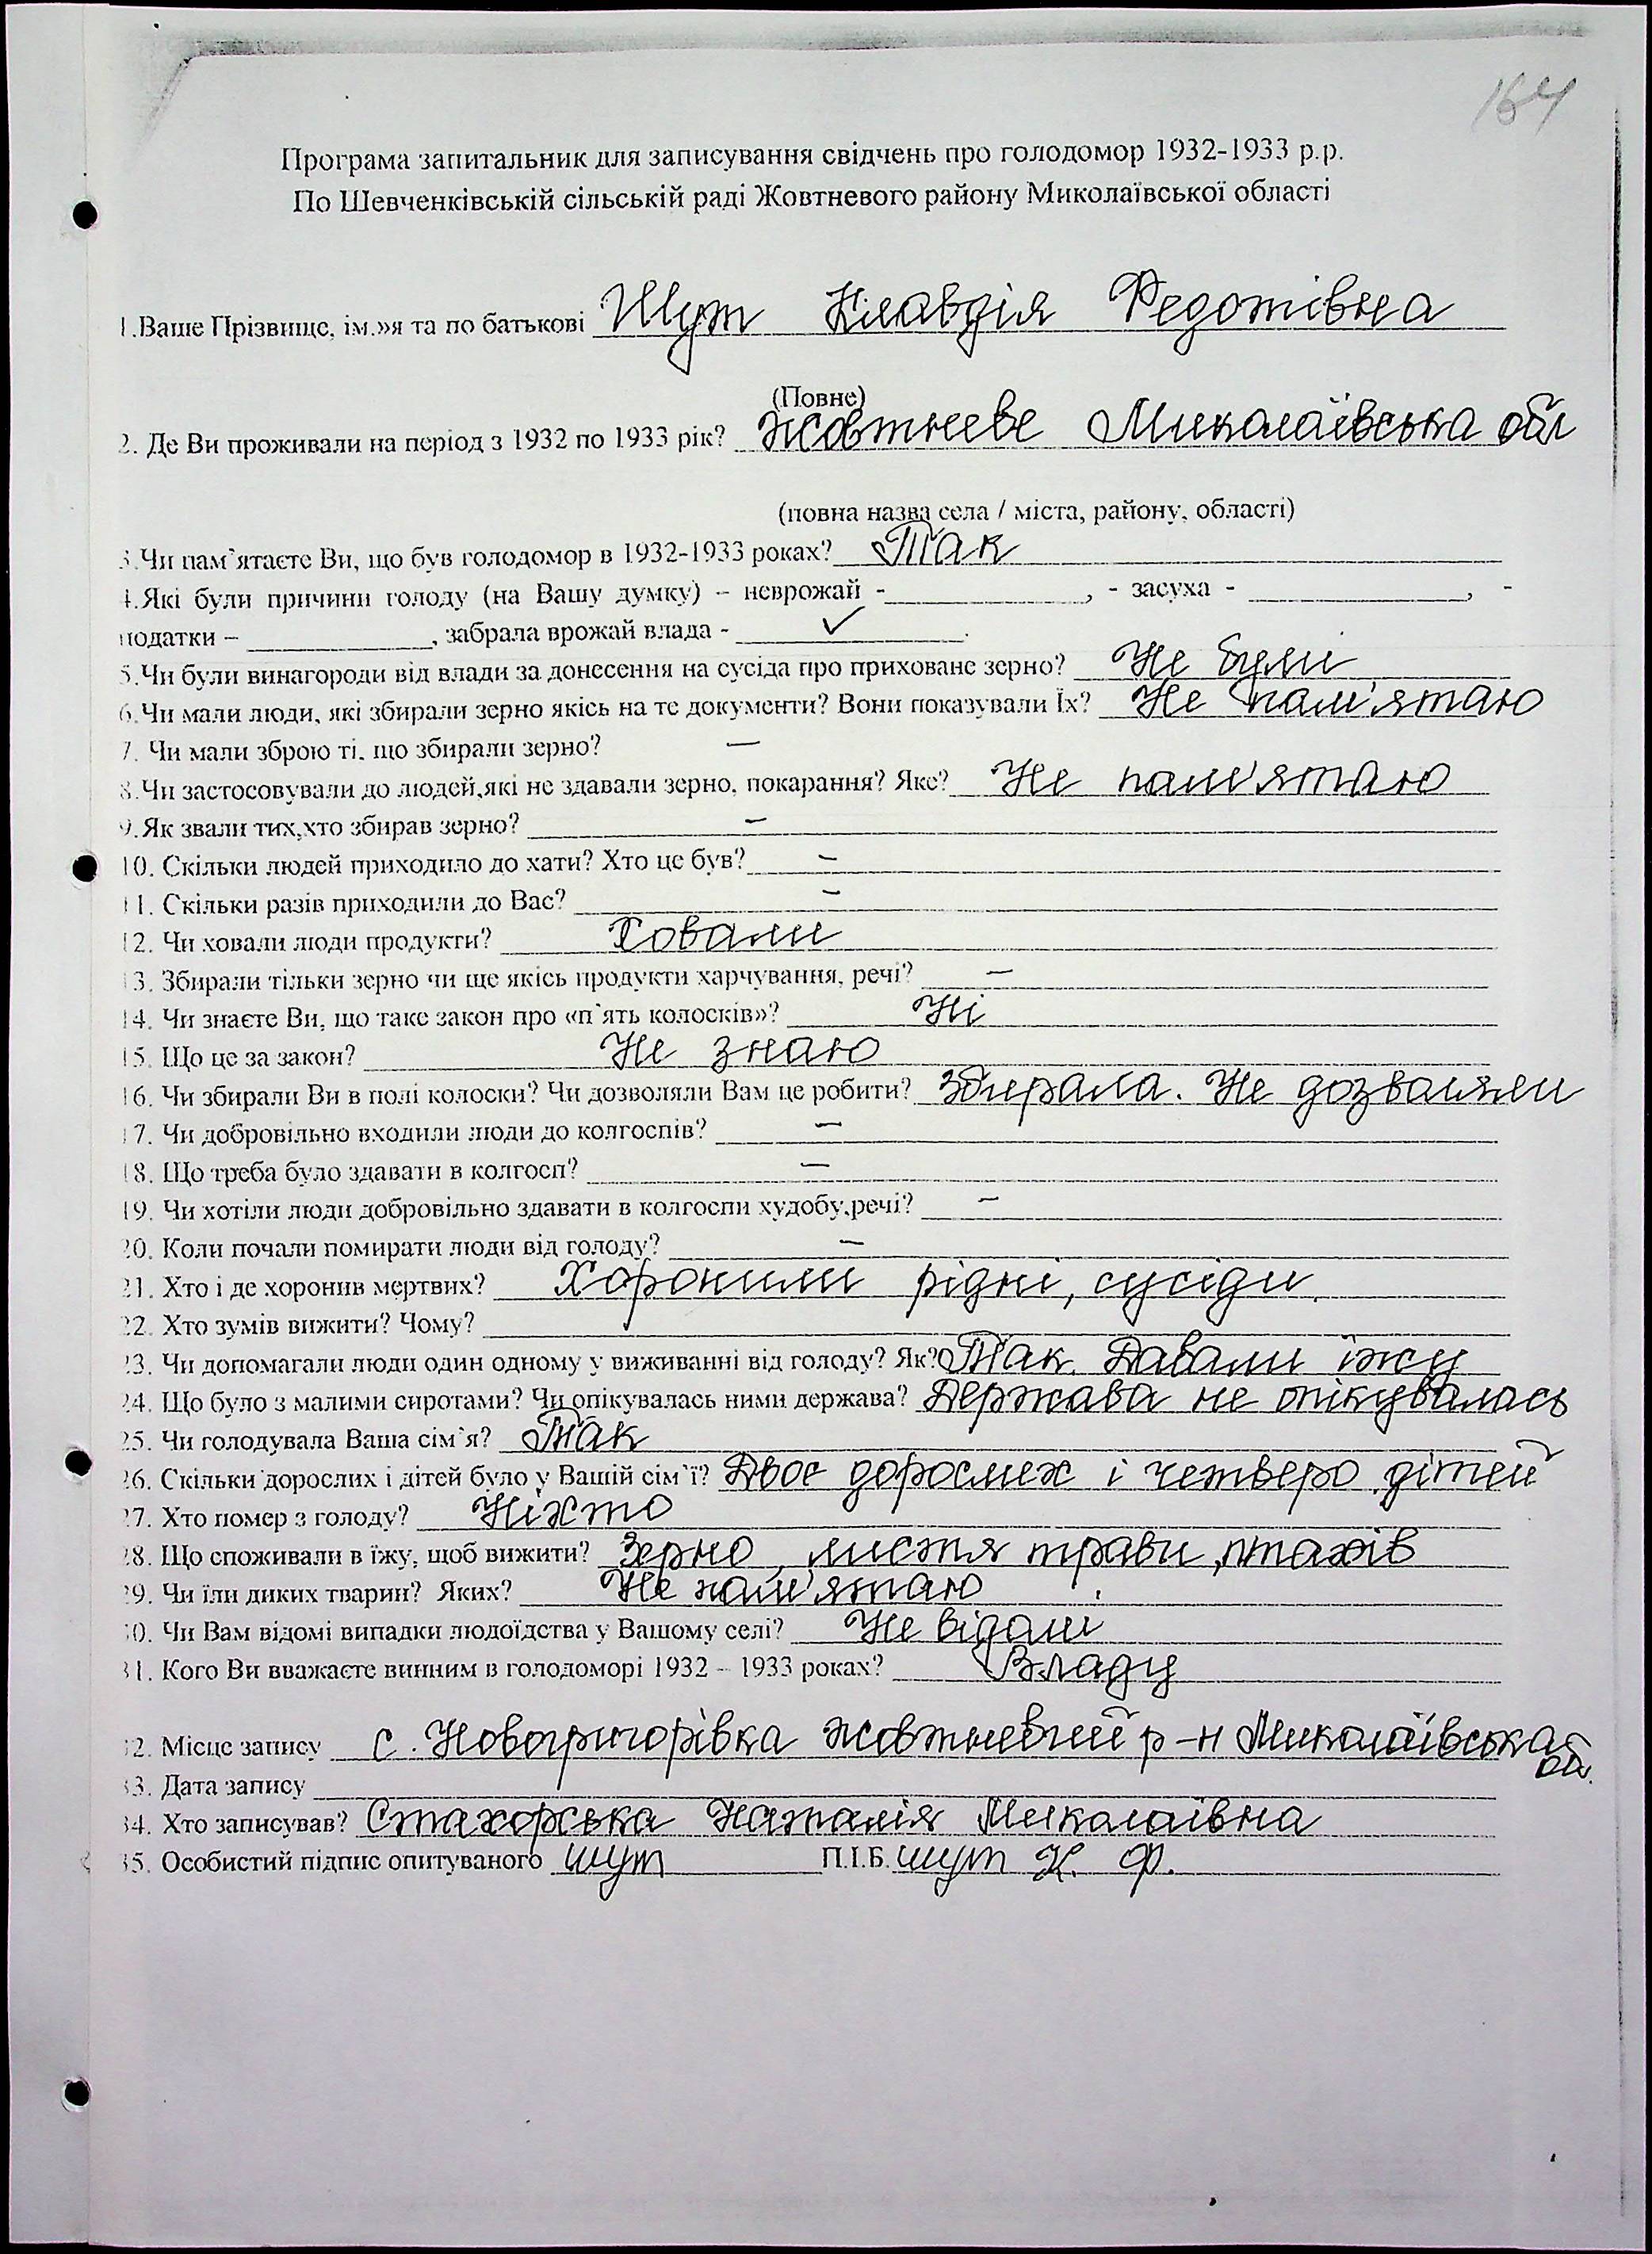 164
Програма запитальник для записування свідчень про голодомор 1932-1933 р.р.
По Шевченківській сільській раді Жовтневого району Миколаївської області
1.Ваше Прізвище, ім.»я та по батькові Шут Клавдія Федотівна
(Повне)
2. Де Ви проживали на період з 1932 по 1933 рік? Жовтневе Миколаївська обл
(повна назва села / міста, району, області)
3.Чи пам`ятаєте Ви, що був голодомор в 1932-1933 роках? Так
4.Які були причини голоду (на Вашу думку) – неврожай -____________, - засуха - ____________, -
податки – ____________, забрала врожай влада - ✓.
5.Чи були винагороди від влади за донесення на сусіда про приховане зерно? Не були
6.Чи мали люди, які збирали зерно якісь на те документи? Вони показували Їх? Не пам'ятаю
7. Чи мали зброю ті, що збирали зерно? —
8.Чи застосовували до людей,які не здавали зерно, покарання? Яке? Не пам'ятаю
9.Як звали тих,хто збирав зерно? —
10. Скільки людей приходило до хати? Хто це був? —
11. Скільки разів приходили до Вас? —
12. Чи ховали люди продукти? Ховали
13. Збирали тільки зерно чи ще якісь продукти харчування, речі? —
14. Чи знаєте Ви, що таке закон про «п`ять колосків»? Ні
15. Що це за закон? Не знаю
16. Чи збирали Ви в полі колоски? Чи дозволяли Вам це робити? Збирала. Не дозволяли
17. Чи добровільно входили люди до колгоспів? —
18. Що треба було здавати в колгосп? —
19. Чи хотіли люди добровільно здавати в колгоспи худобу,речі? —
20. Коли почали помирати люди від голоду? —
21. Хто і де хоронив мертвих? Хоронили рідні, сусіди.
22. Хто зумів вижити? Чому?
23. Чи допомагали люди один одному у виживанні від голоду? Як? Так. Давали їжу
24. Що було з малими сиротами? Чи опікувалась ними держава? Держава не опікувалась
25. Чи голодувала Ваша сім`я? Так
26. Скільки дорослих і дітей було у Вашій сім`ї? Двоє дорослих і четверо дітей
27. Хто помер з голоду? Ніхто
28. Що споживали в їжу, щоб вижити? Зерно, листя трави, птахів
29. Чи їли диких тварин? Яких? Не пам'ятаю
30. Чи Вам відомі випадки людоїдства у Вашому селі? Не відомі
31. Кого Ви вважаєте винним в голодоморі 1932 – 1933 роках? Владу
32. Місце запису с. Новогригорівка Жовтневий р-н Миколаївська обл.
33. Дата запису
34. Хто записував? Стахорська Наталія Миколаївна
35. Особистий підпис опитуваного Шут П.І.Б. Шут К. Ф.